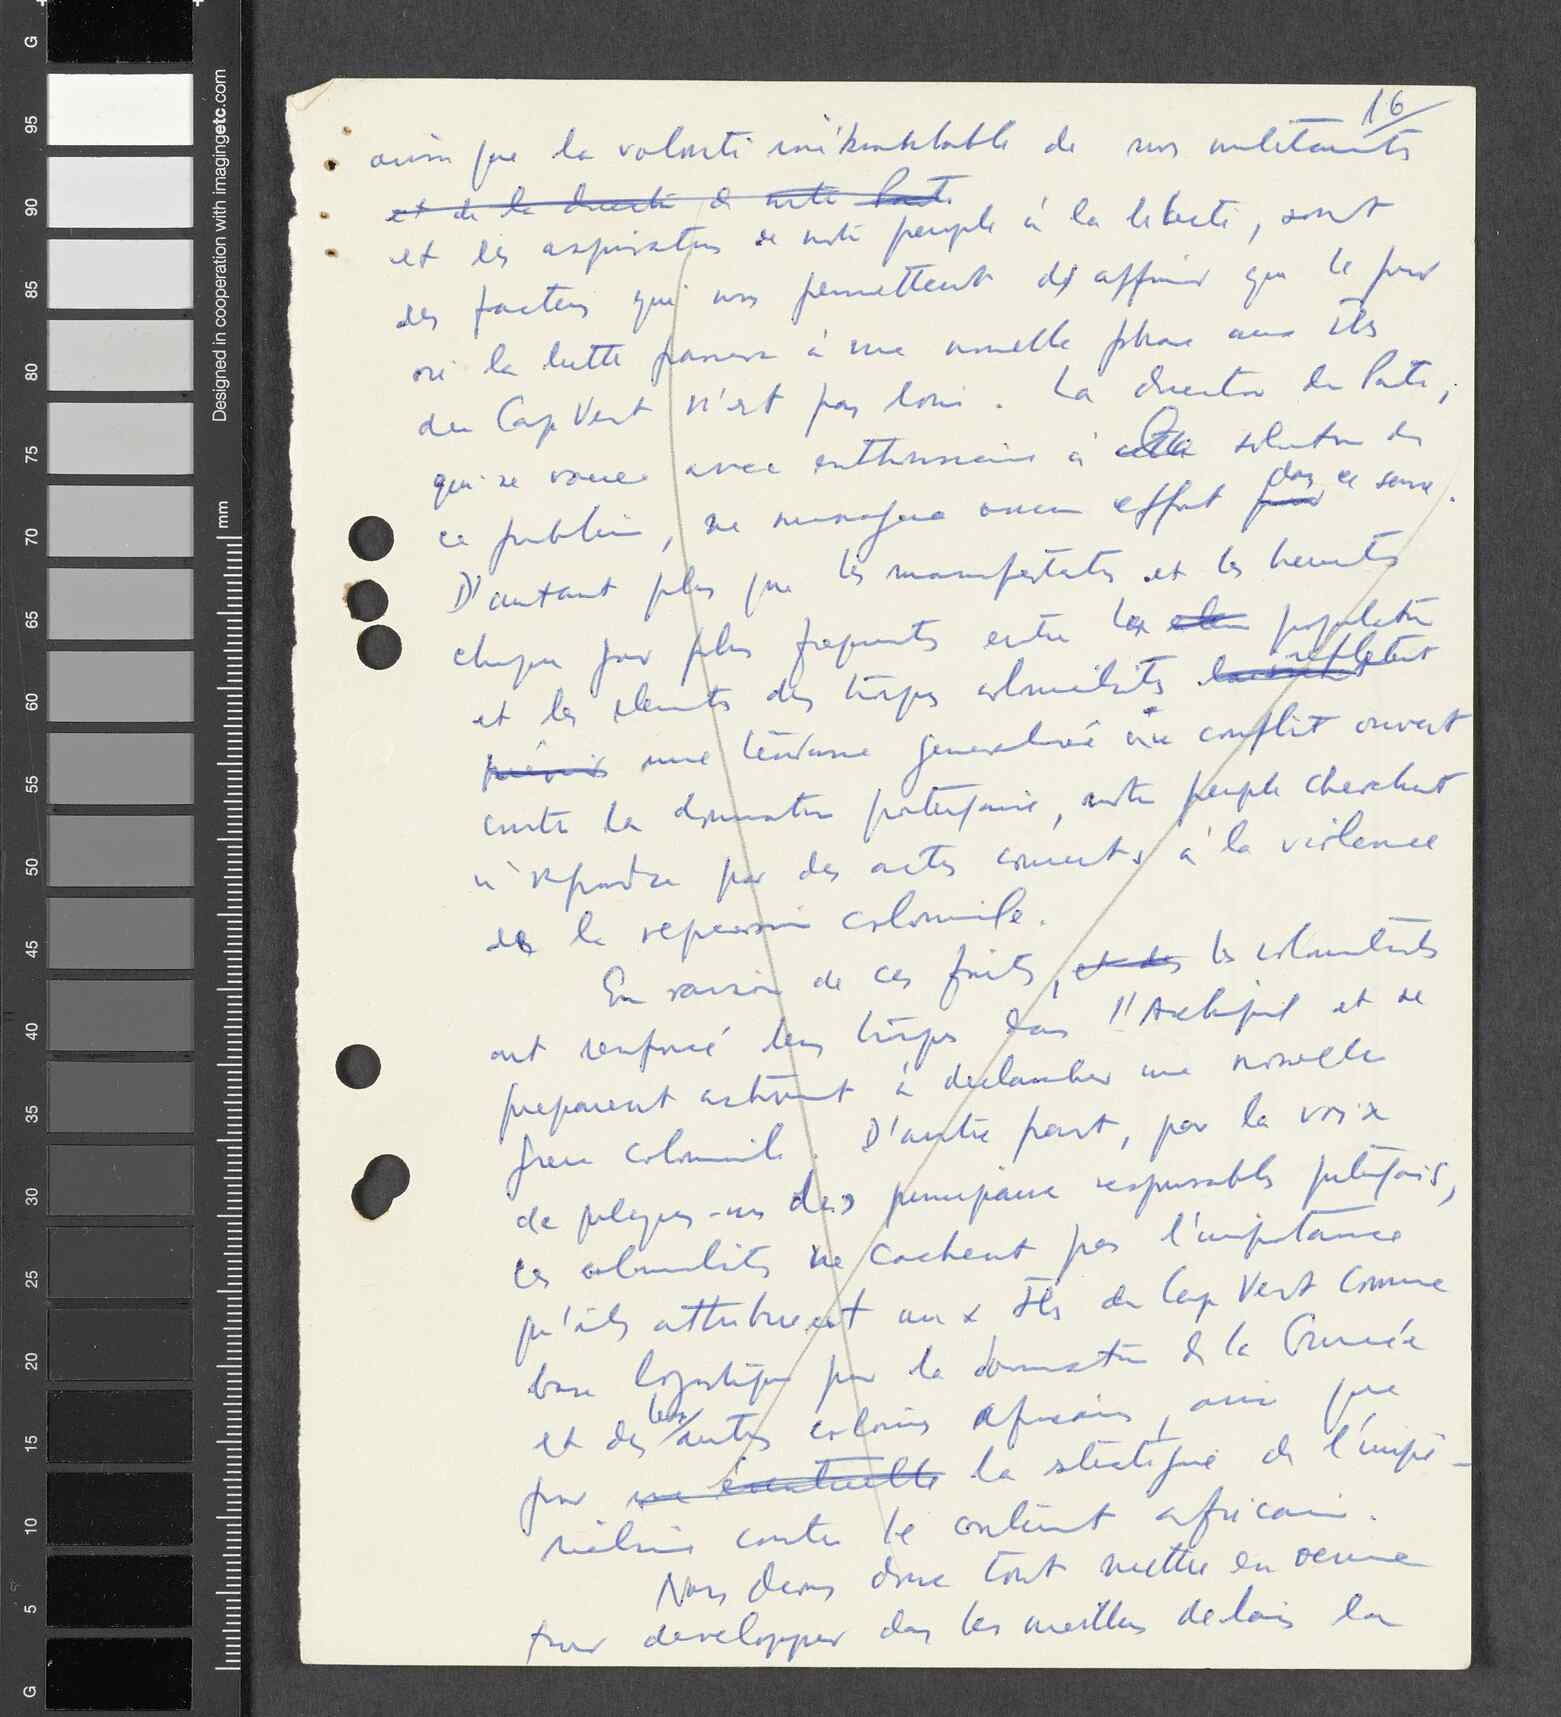 16
ainsi que la volonté inébranlable de nos militants
et de la direction de notre Parti
et les aspirations de notre peuple à la liberté, sont
des facteurs qui nous permettent d'affirmer que le jour
où la lutte passera à une nouvelle phase aux Iles
du Cap Vert n'est pas loin. La direction du Parti,
qui se voue avec enthousiasme à la solution de
ce problème, ne ménagera aucun effort dans ce sens.
D'autant plus que les manifestations et les heurts
chaque jour plus fréquents entre les populations
et les éléments des troupes colonialistes reflètent
une tendance generalisée au conflit ouvert
contre la domination portugaise, notre peuple cherchant
à répondre par des actes concrets à la violence
de la repression coloniale.
En raison de ces faits, et des les colonialistes
ont renforcé leurs troupes dans l'Archipel et se
preparent activement à declancher une nouvelle
guerre coloniale. D'autre part, par la voix
de quelques-uns des principaux responsables portugais,
les colonialistes ne cachent pas l'importance
qu'ils attribuent aux Iles du Cap Vert comme
base logistique pour la domination de la Guinée
et des leurs autres colonies africaines, ainsi que
pour une éventuelle la stratégie de l'impé-
rialisme contre le continent africain.
Nous devons donc tout mettre en oeuvre
pour developper dans les meilleurs delais la